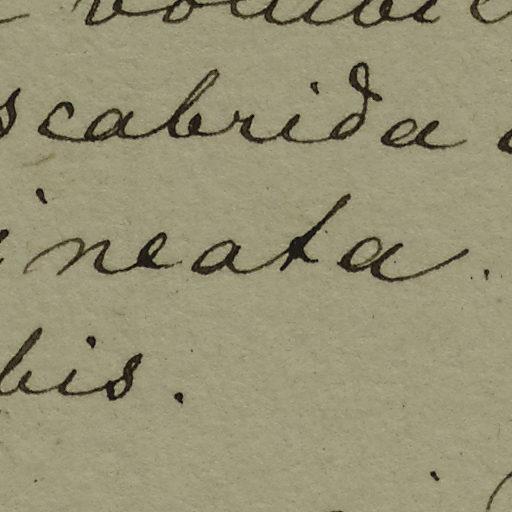 scabrida
ineata.
bis.